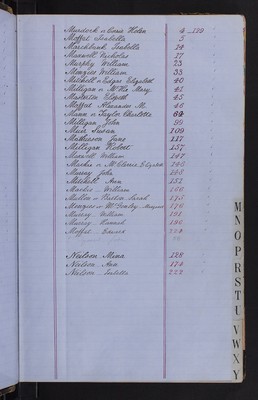 Murdoch v Currie Helen 4_129
Moffat Isabella 5
Marchbank Isabella 14
Maxwell Nicholas 17
Murphy William 23
Menzies William 33
Mitchell v Edgar Elizabeth 40
Milligan v Mary 41
Masterton Elizabeth 45
Moffat Alexander M. 46
Mann v Taylor Charlotte 64
Milligan John 99
Muir Susan 109
Mathieson Jane 117
Milligan Robert 157
Maxwell William 147
Mackie v Elizabeth
Murray John
Mitchell Ann
Mackie William
Mullen v Sarah 175
Menzies v Margaret 176
Murray William 191
Murray Hannah 196
Moffat Edward
Neilson Mina 128
Neilson Ann 174
Neilson Isabella 222
M
N
O
P
R
S
T
U
V
W
X
Y